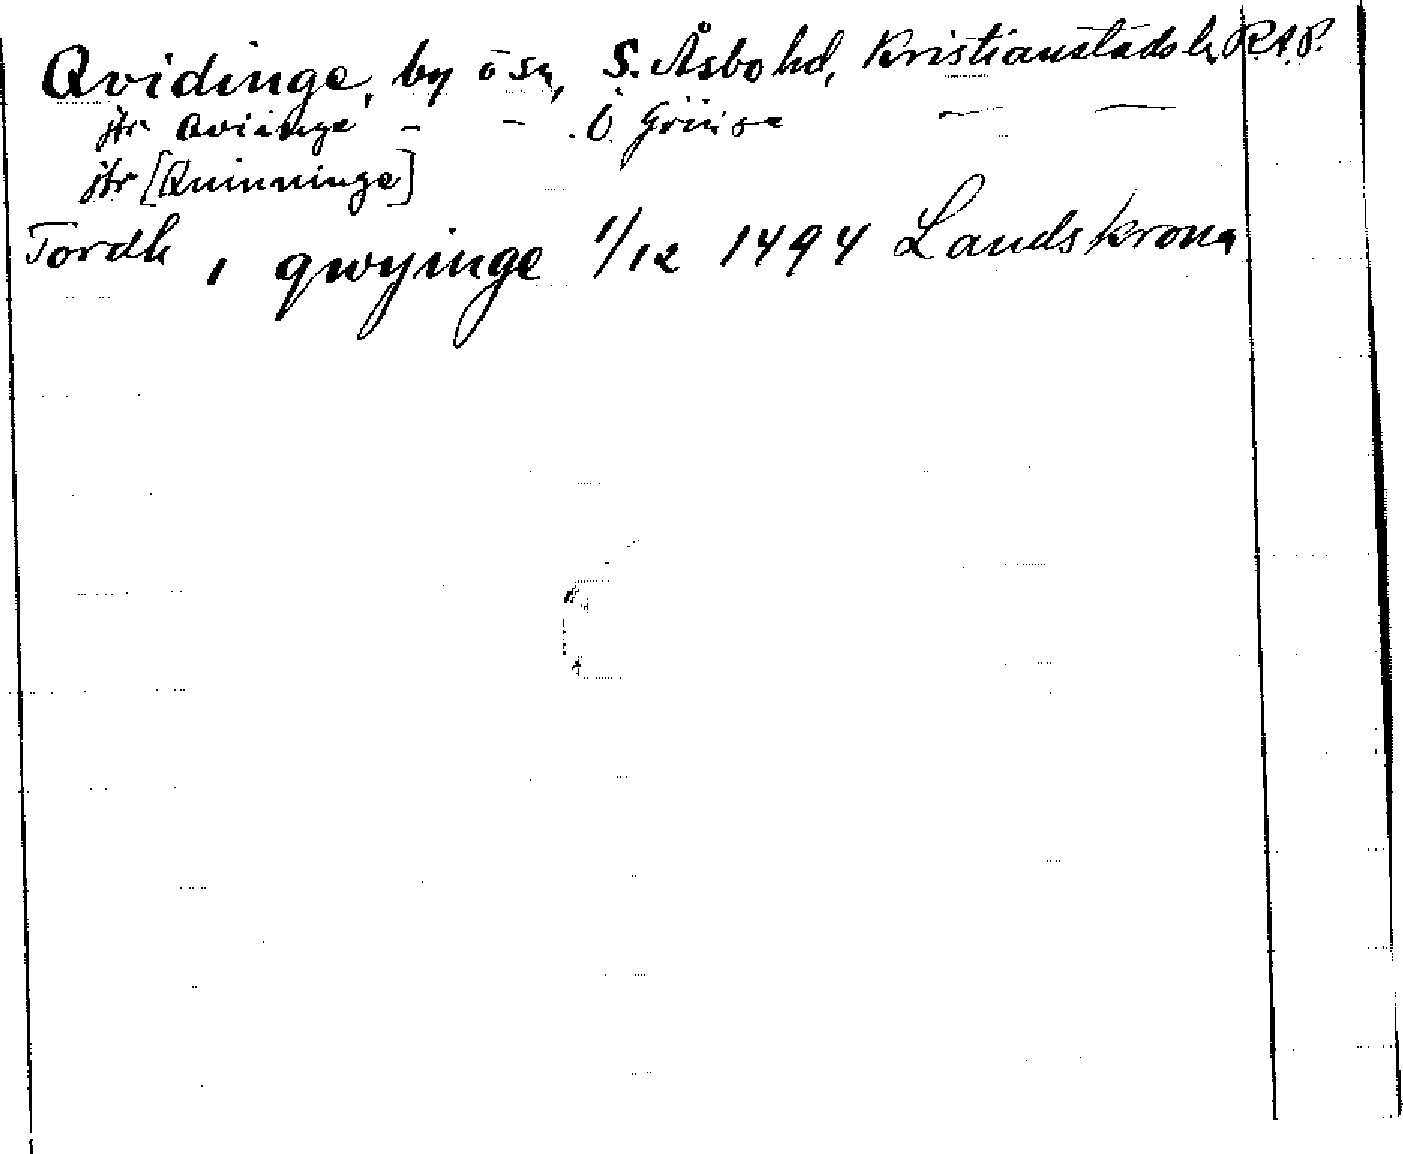 Qvidinge, by o sn, S. Åsbo hd, Kristianstads l. RAP.
jfr Qviinge - - . Ö Göinge — —
jfr [Quinninge]
Tordh i qwyinge 1/12 1494 Landskrona